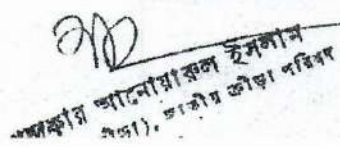 আনোয়ারুল ইসলাম
জাতীয় ক্রীড়া পরিষদ